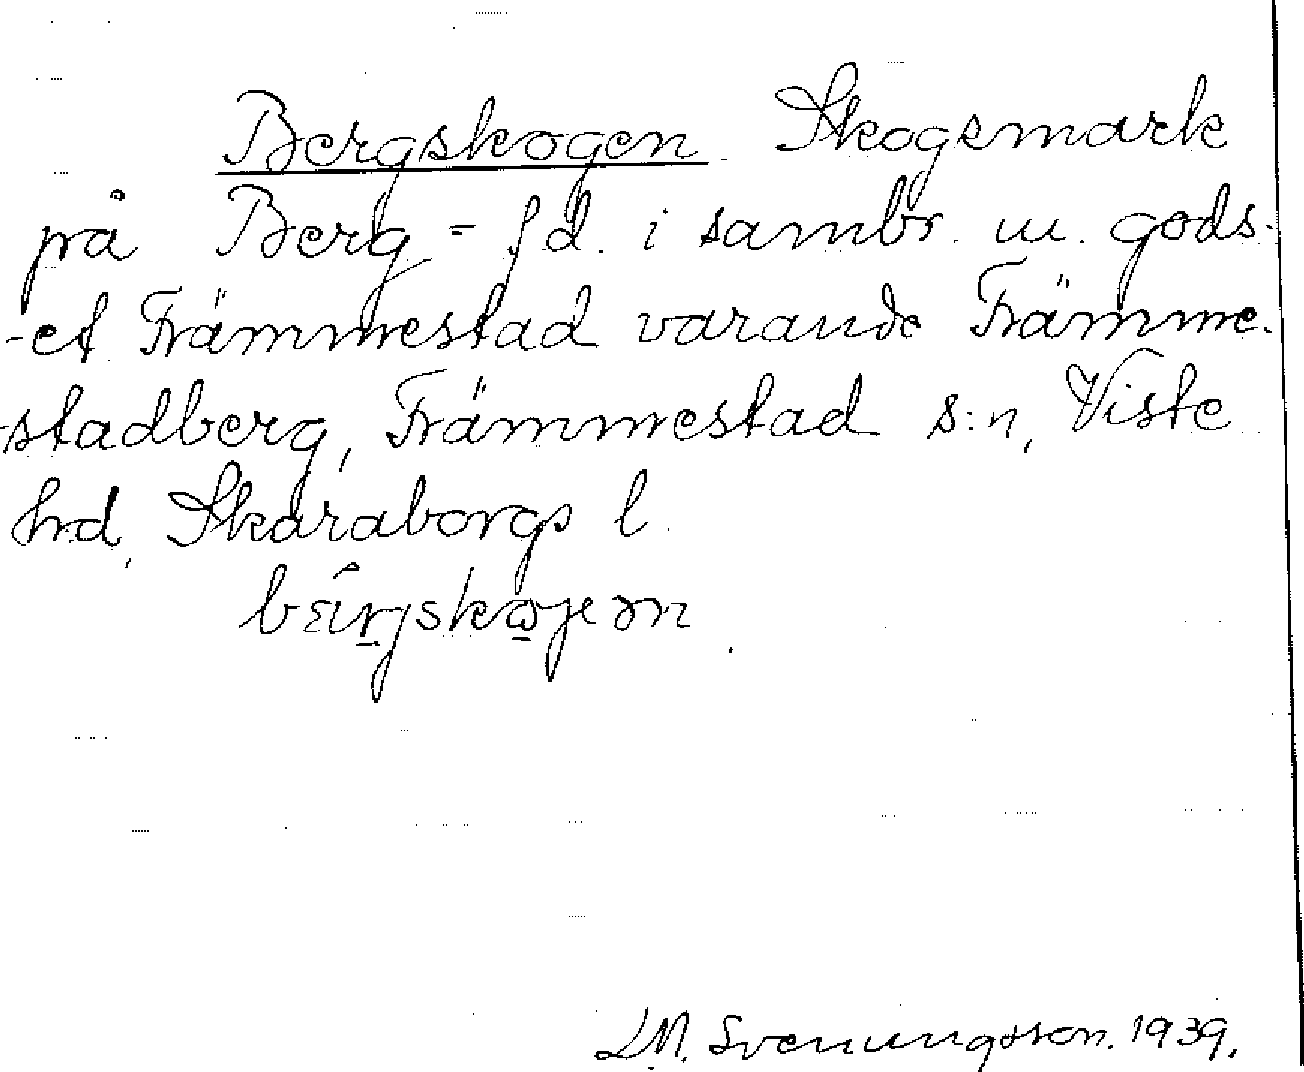 Bergskogen Skogsmark
på Berg = f.d. i sambr. m. gods-
-et Främmestad varande Främme-
-stadberg, Främmestad s:n, Viste
hd, Skaraborgs l.
L.M. Svenungsson. 1939.